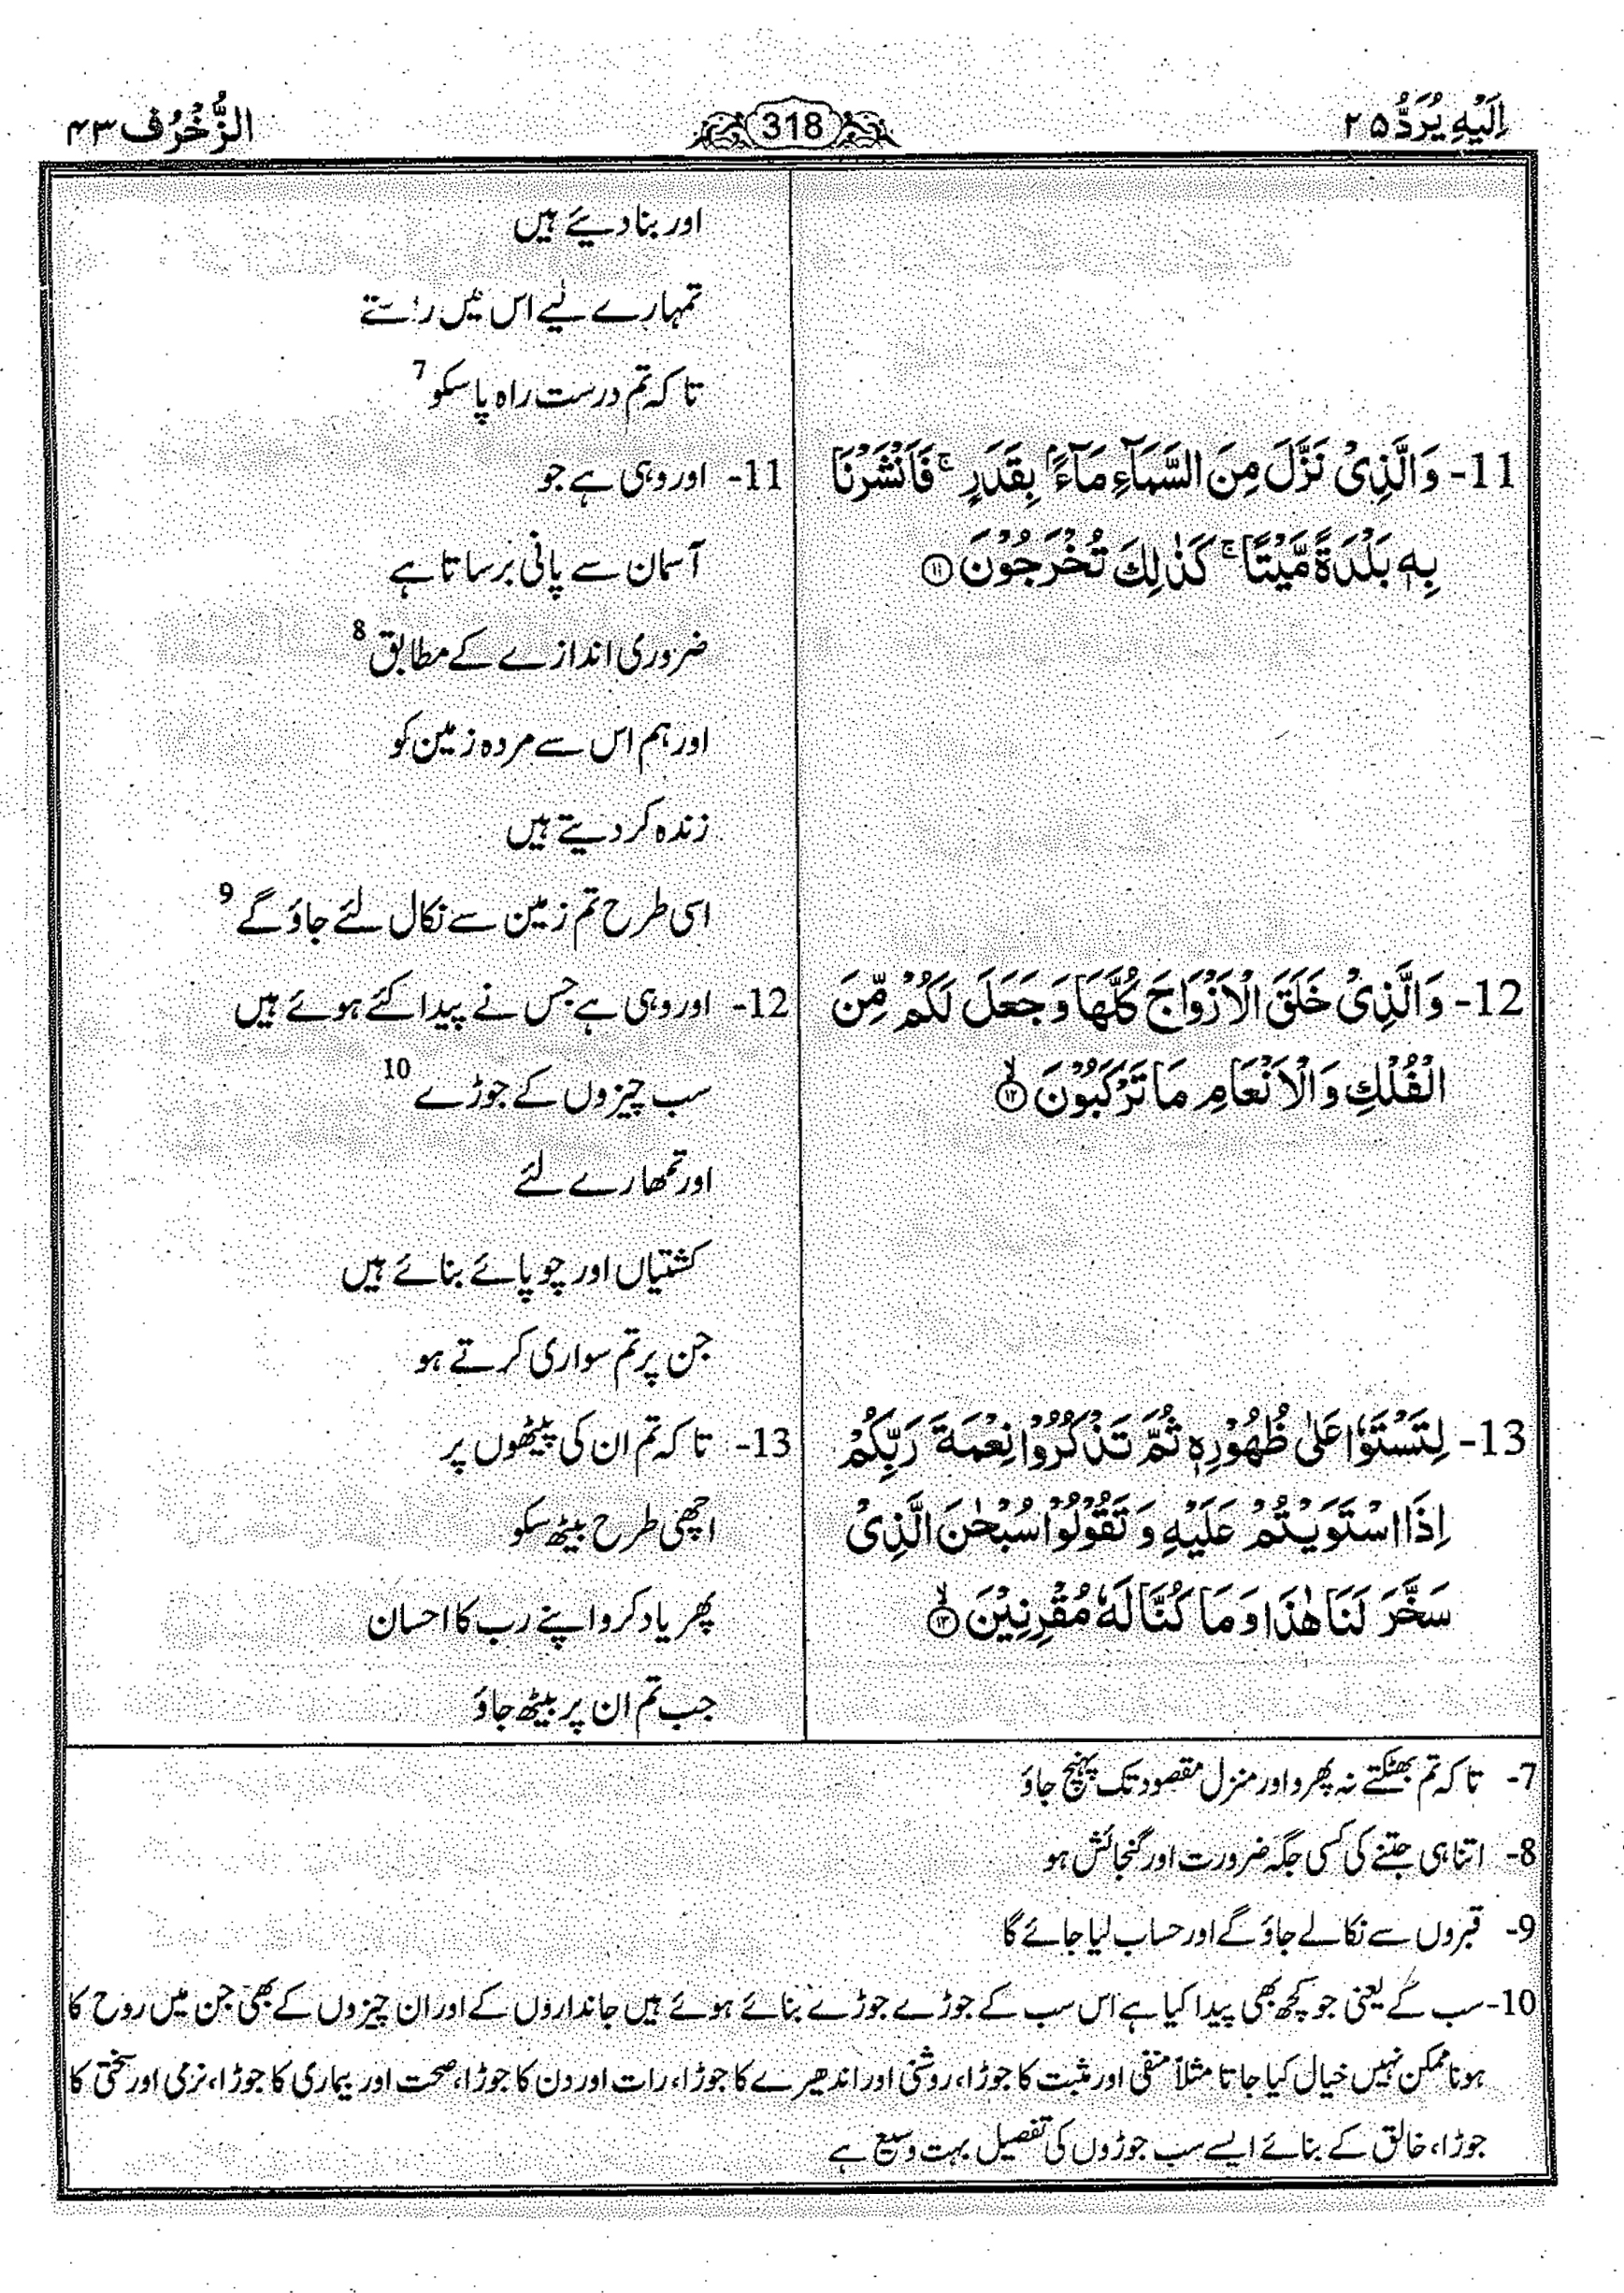 اِلَیْهِ یُرَدُّ ۲۵
318
الزُّخْرُف ۴۳
اور بنا دیئے ہیں
تمہارے لیے اس میں رستے
تاکہ تم درست راہ پا سکو 7
11- وَالَّذِیْ نَزَّلَ مِنَ السَّمَآءِ مَآءًۢ بِقَدَرٍ ۚ فَاَنْشَرْنَا
بِهٖ بَلْدَةً مَّیْتًا ۚ كَذٰلِكَ تُخْرَجُوْنَ ⑪
11- اور وہی ہے جو
آسمان سے پانی برساتا ہے
ضروری اندازے کے مطابق 8
اور ہم اس سے مردہ زمین کو
زندہ کر دیتے ہیں
اسی طرح تم زمین سے نکال لئے جاؤ گے 9
12- وَالَّذِیْ خَلَقَ الْاَزْوَاجَ كُلَّهَا وَجَعَلَ لَكُمْ مِّنَ
الْفُلْكِ وَالْاَنْعَامِ مَا تَرْكَبُوْنَ ⑫ۙ
12- اور وہی ہے جس نے پیدا کئے ہوئے ہیں
سب چیزوں کے جوڑے 10
اور تمھارے لئے
کشتیاں اور چوپائے بنائے ہیں
جن پر تم سواری کرتے ہو
13- لِتَسْتَوٗا عَلٰی ظُهُوْرِهٖ ثُمَّ تَذْكُرُوْا نِعْمَةَ رَبِّكُمْ
اِذَا اسْتَوَیْتُمْ عَلَیْهِ وَ تَقُوْلُوْا سُبْحٰنَ الَّذِیْ
سَخَّرَ لَنَا هٰذَا وَ مَا كُنَّا لَهٗ مُقْرِنِیْنَ ⑬ۙ
13- تاکہ تم ان کی پیٹھوں پر
اچھی طرح بیٹھ سکو
پھر یاد کرو اپنے رب کا احسان
جب تم ان پر بیٹھ جاؤ
7- تاکہ تم بھٹکتے نہ پھرو اور منزل مقصود تک پہنچ جاؤ
8- اتنا ہی جتنے کی کسی جگہ ضرورت اور گنجائش ہو
9- قبروں سے نکالے جاؤ گے اور حساب لیا جائے گا
10- سب کے یعنی جو کچھ بھی پیدا کیا ہے اس سب کے جوڑے جوڑے بنائے ہوئے ہیں جانداروں کے اور ان چیزوں کے بھی جن میں روح کا
ہونا ممکن نہیں خیال کیا جاتا مثلاً منفی اور مثبت کا جوڑا، روشنی اور اندھیرے کا جوڑا، رات اور دن کا جوڑا، صحت اور بیماری کا جوڑا، نرمی اور سختی کا
جوڑا، خالق کے بنائے ایسے سب جوڑوں کی تفصیل بہت وسیع ہے